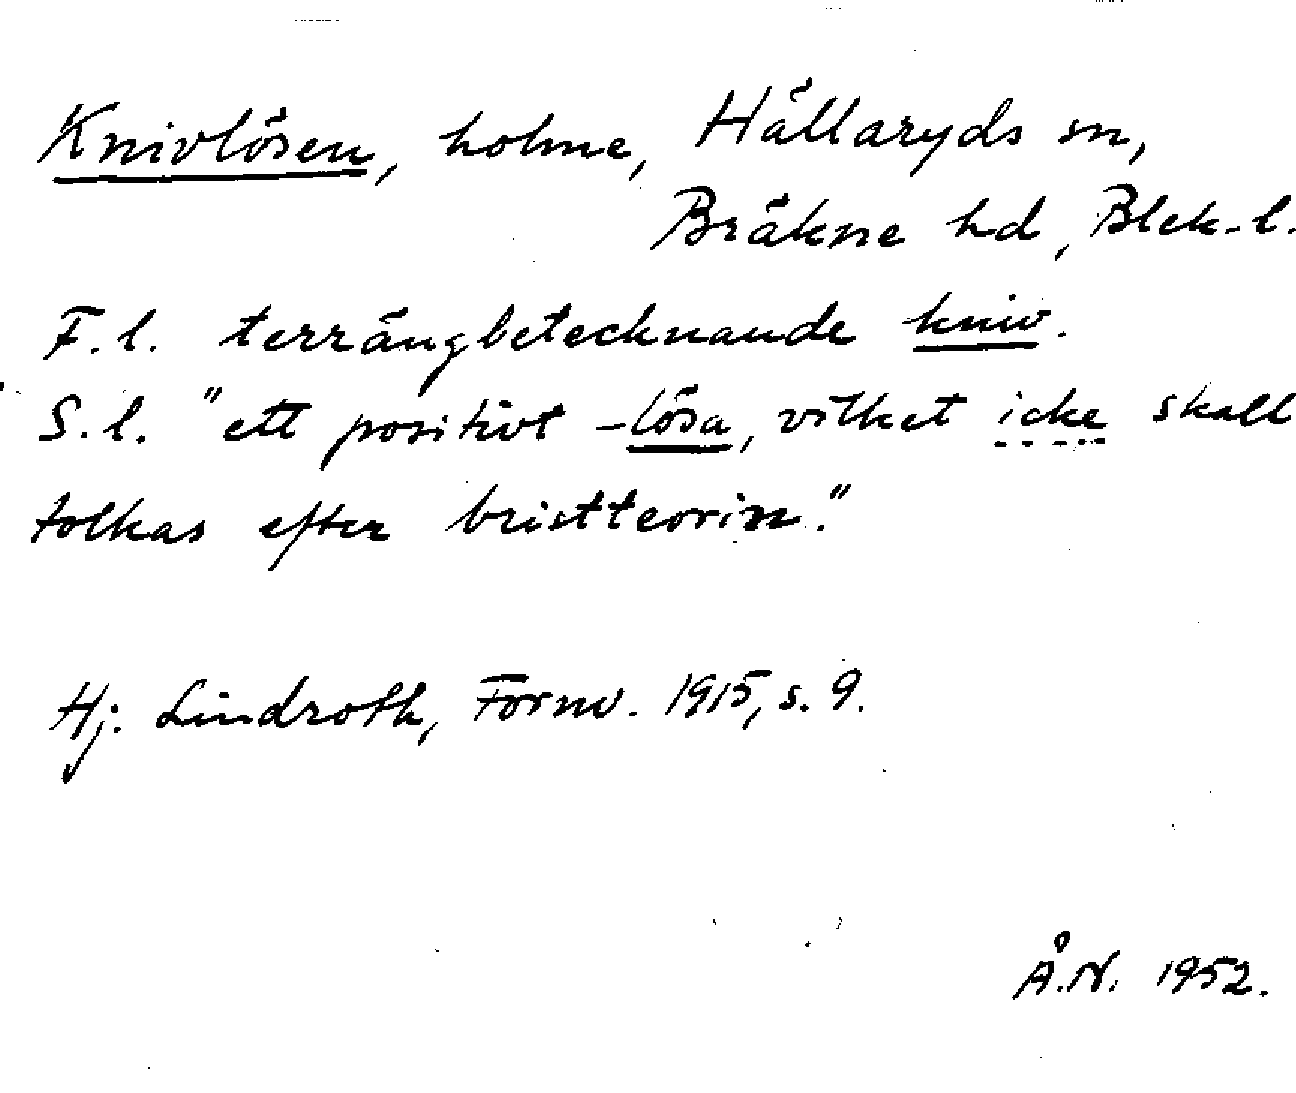 Knivlösen, holme, Hällaryds sn,
Bräkne hd, Blek. l.
F.l. terrängbetecknande kniv.
S.l. "ett positivt -lösa, vilket icke skall
tolkas efter bristteorin."
Hj. Lindroth, Fornv. 1915, s. 9.
Å.N. 1952.